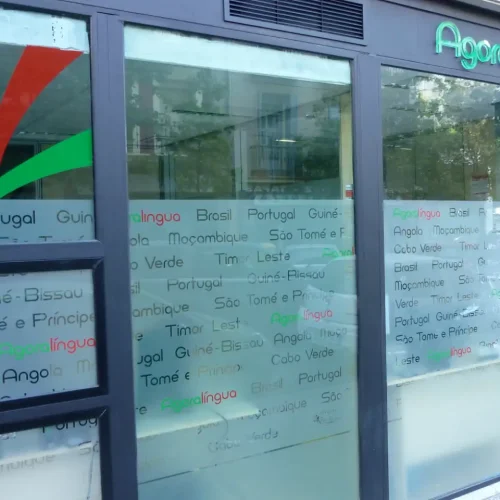 Agora
ugal Guin
sé-Bissau
é e Príncipe
Agoralíngua
Angola M
oralingua Brasil Portugal Guiné-
gola Moçambique São Tomé e P
o Verde Timor Leste
sil Portugal Guiné-Bissau
mbique São Tomé e Príncipe
e Timor Lest Agoralíngua
ugal Guiné-Bissau Angola Moça
Tomé e Príncipe Cabo Verde
Agoralíngua Brasil Portugal
Moçambique São Tomé
Cabo Verde
Agoralingua Brasil P
Angola Moçambique São
Cabo Verde Timor Leste
Brasil Portugal Guiné
Moçambique São Tomé
Verde Timor Leste
Portugal Guiné-Bissau
São Tomé e Príncipe
Leste Agoralíngua